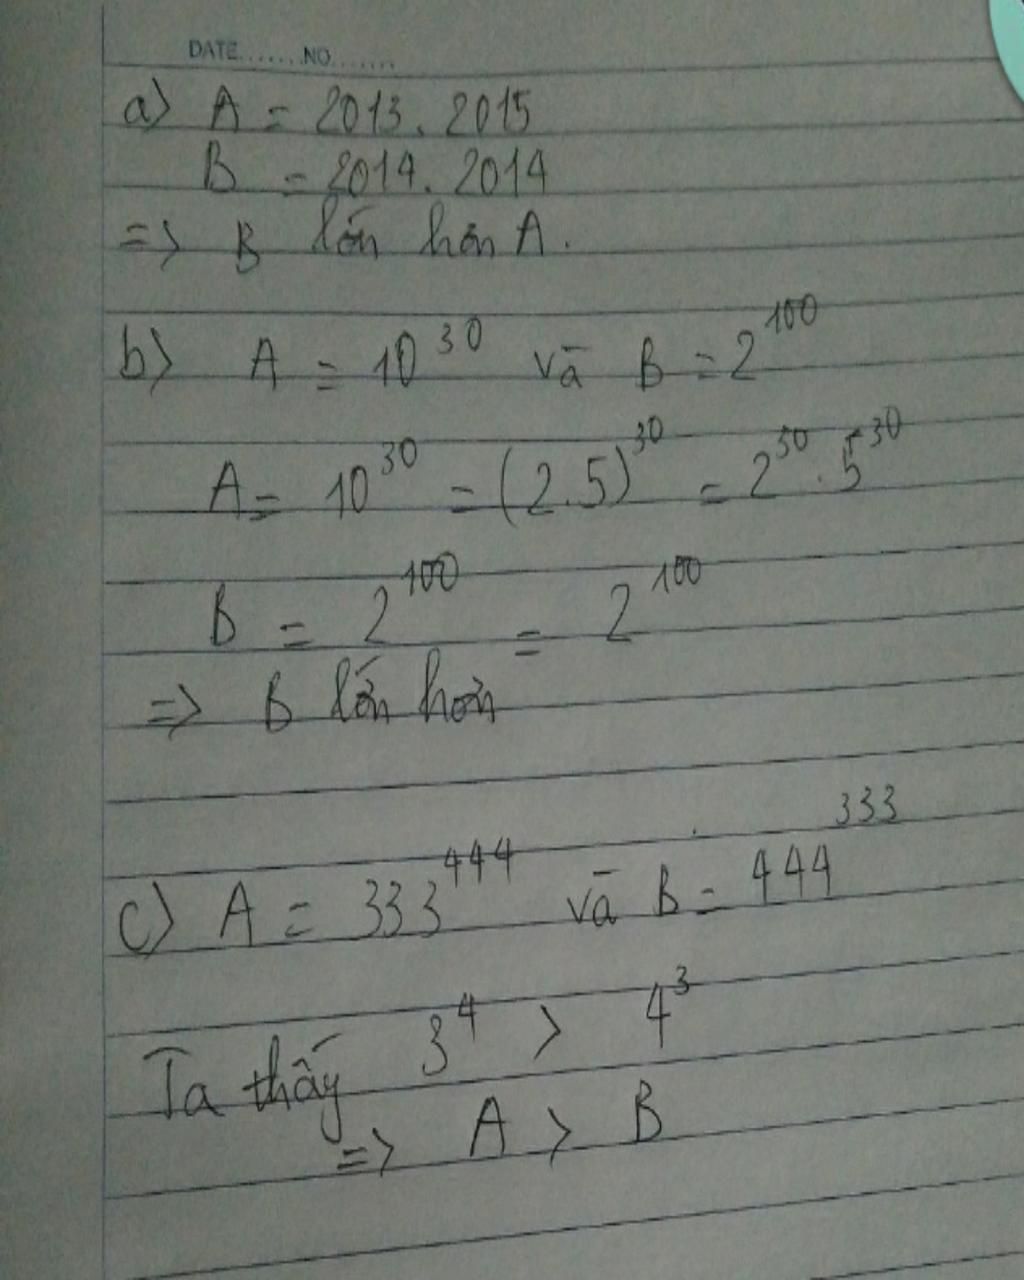 DATE.......NO.......
a) A = 2013. 2015
B = 2014. 2014
=> B lớn hơn A.
b) A = 10^30 và B = 2^100
A = 10^30 = (2.5)^30 = 2^30 . 5^30
B = 2^100 = 2^100
=> B lớn hơn
c) A = 333^444 và B = 444^333
Ta thấy 3^4 > 4^3
=> A > B